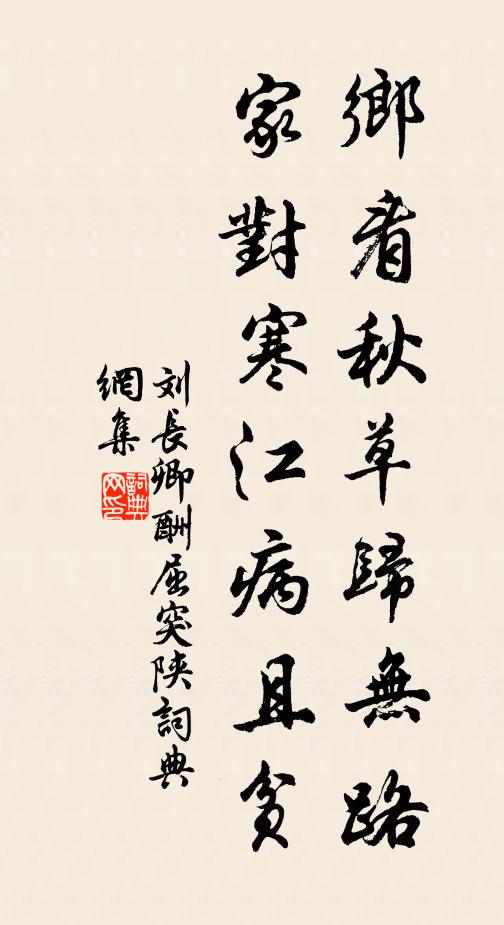 鄉看秋草歸無路
家對寒江病且貧
刘長卿酬屈突陕詞典
網集
詞典
网印